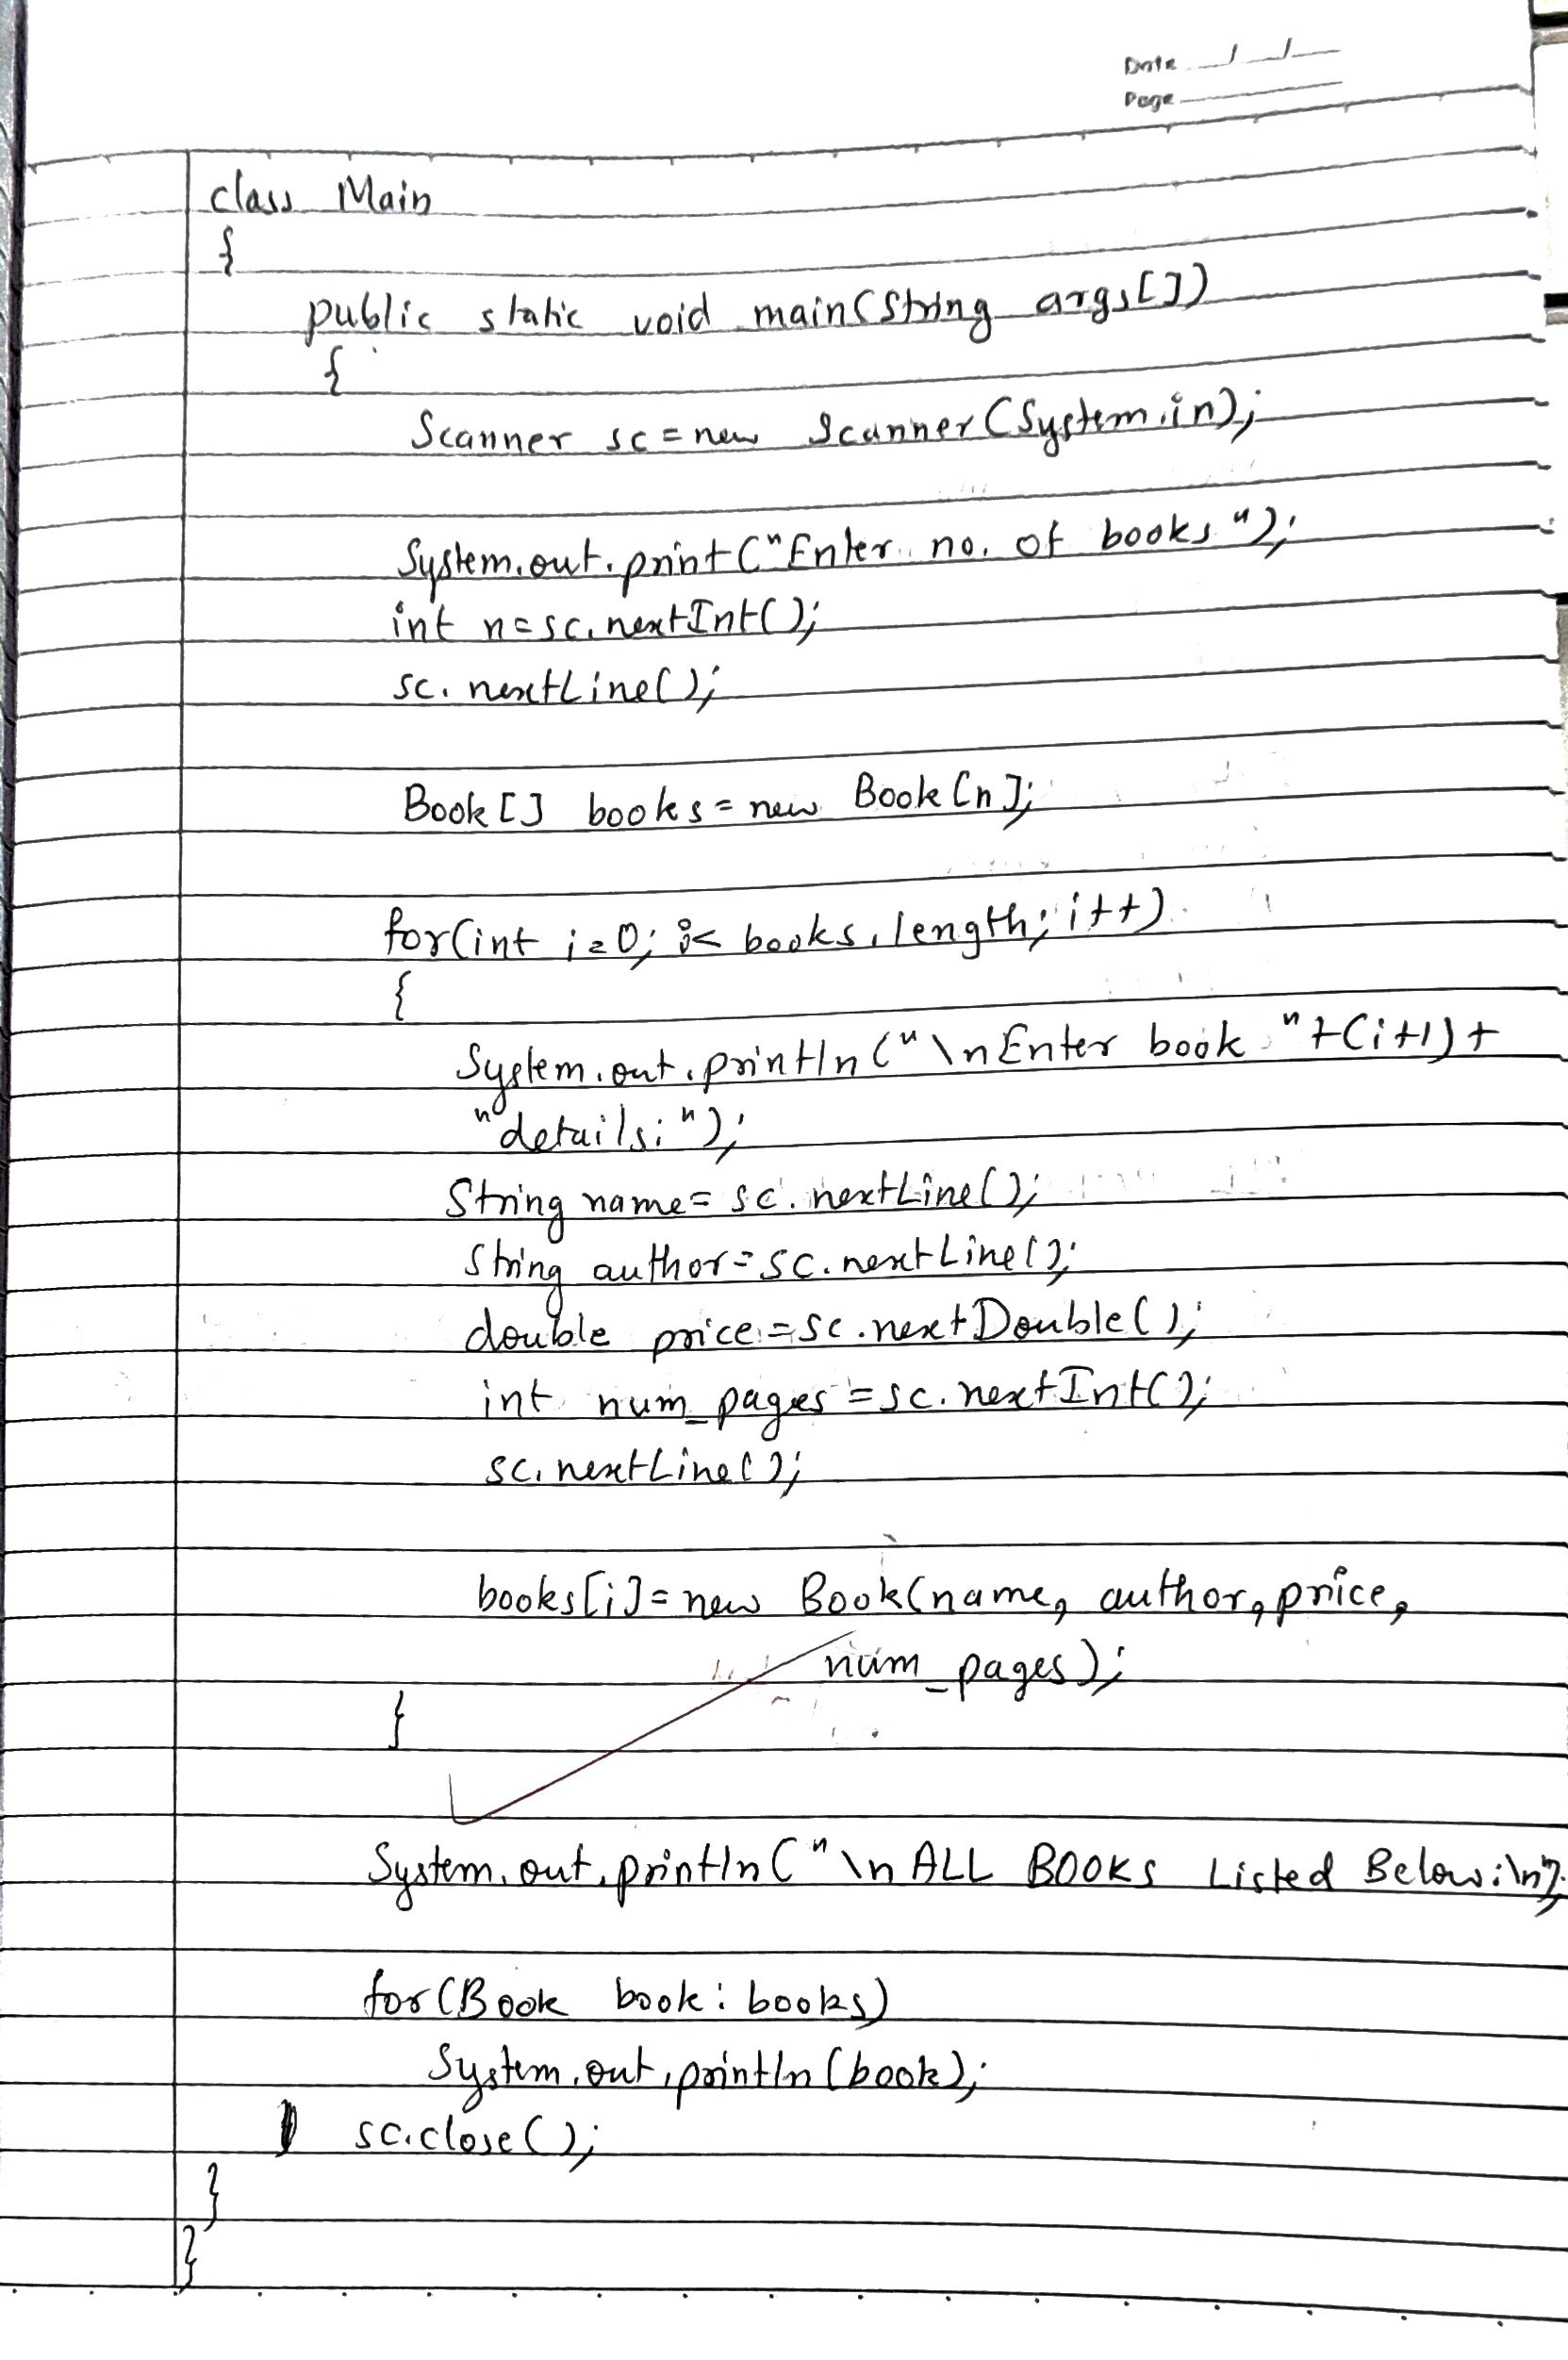 Date / /
Page
class Main
{
public static void main(String args[])
{
Scanner sc = new Scanner(System.in);
System.out.print("Enter no. of books ");
int n=sc.nextInt();
sc.nextLine();
Book[] books = new Book[n];
for(int i=0; i< books.length; i++)
{
System.out.println("\nEnter book "+(i+1)+
"details:");
String name= sc.nextLine();
String author=sc.nextLine();
double price=sc.nextDouble();
int num_pages =sc.nextInt();
sc.nextLine();
books[i]=new Book(name, author, price,
num_pages);
}
System.out.println("\nALL BOOKS Listed Below:\n");
for(Book book: books)
System.out.println(book);
sc.close();
}
}